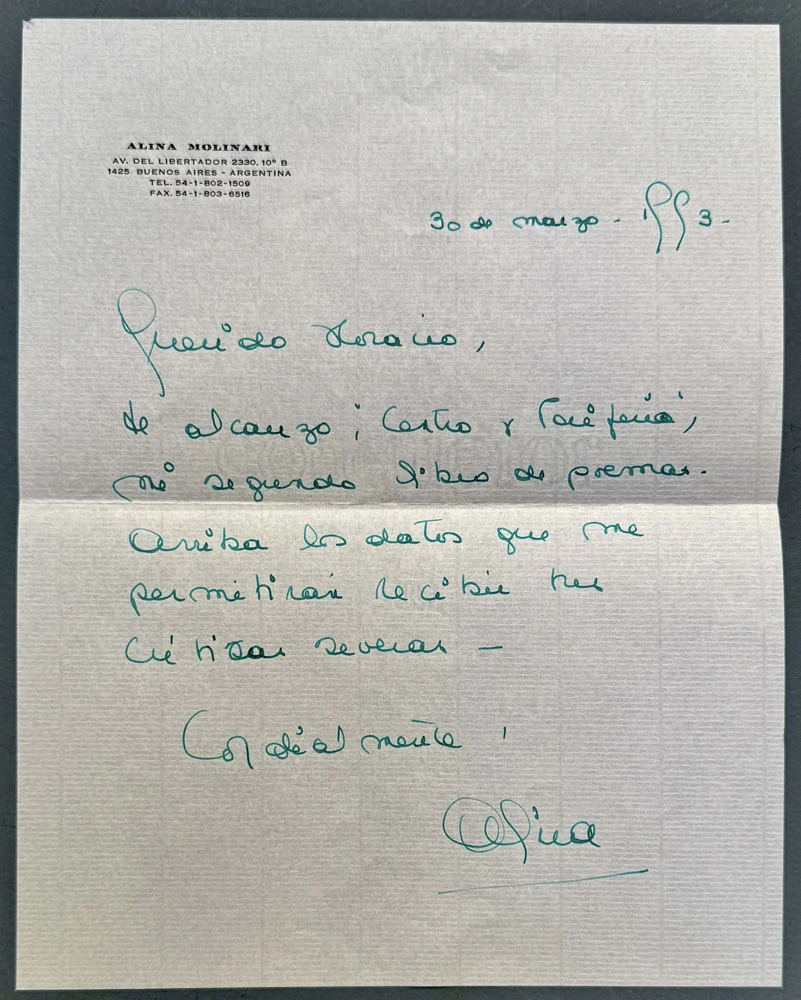 ALINA MOLINARI
AV. DEL LIBERTADOR 2330, 10º B
1425 BUENOS AIRES - ARGENTINA
TEL. 54-1-802-1509
FAX. 54-1-803-6516
30 de marzo - 1993 -
Querido Horacio,
te alcanzo ¡Centro y Periferia!,
mi segundo libro de poemas.
Arriba los datos que me
permitirán recibir tus
críticas severas -
Cordialmente,
Alina